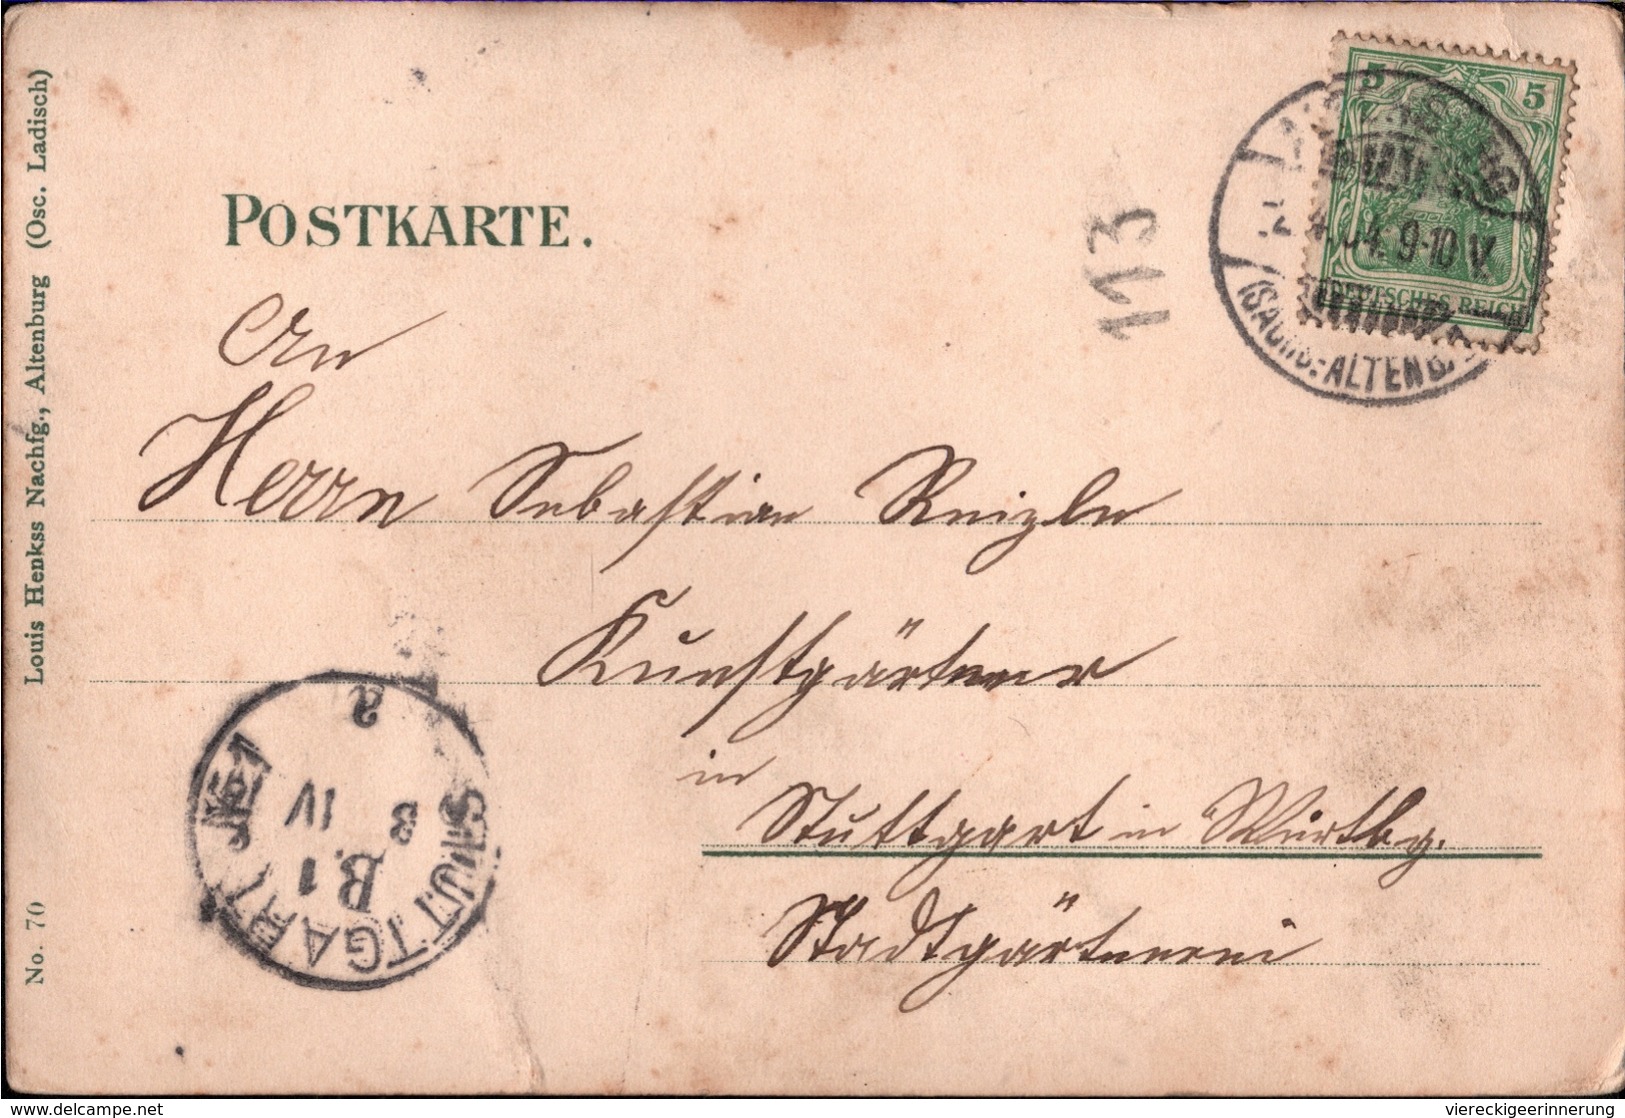 POSTKARTE.
An
Herrn Sebastian Reizle
Kunstgärtner
in
Stuttgart in Würtbg.
Stadtgärtnerei
113
5 5
DEUTSCHES REICH
4.04. 9-10 V.
(SACHS.-ALTENB.)
STUTTGART
B.1
3 IV
a
Louis Henkss Nachfg., Altenburg (Osc. Ladisch)
No. 70
viereckigeerinnerung
delcampe.net